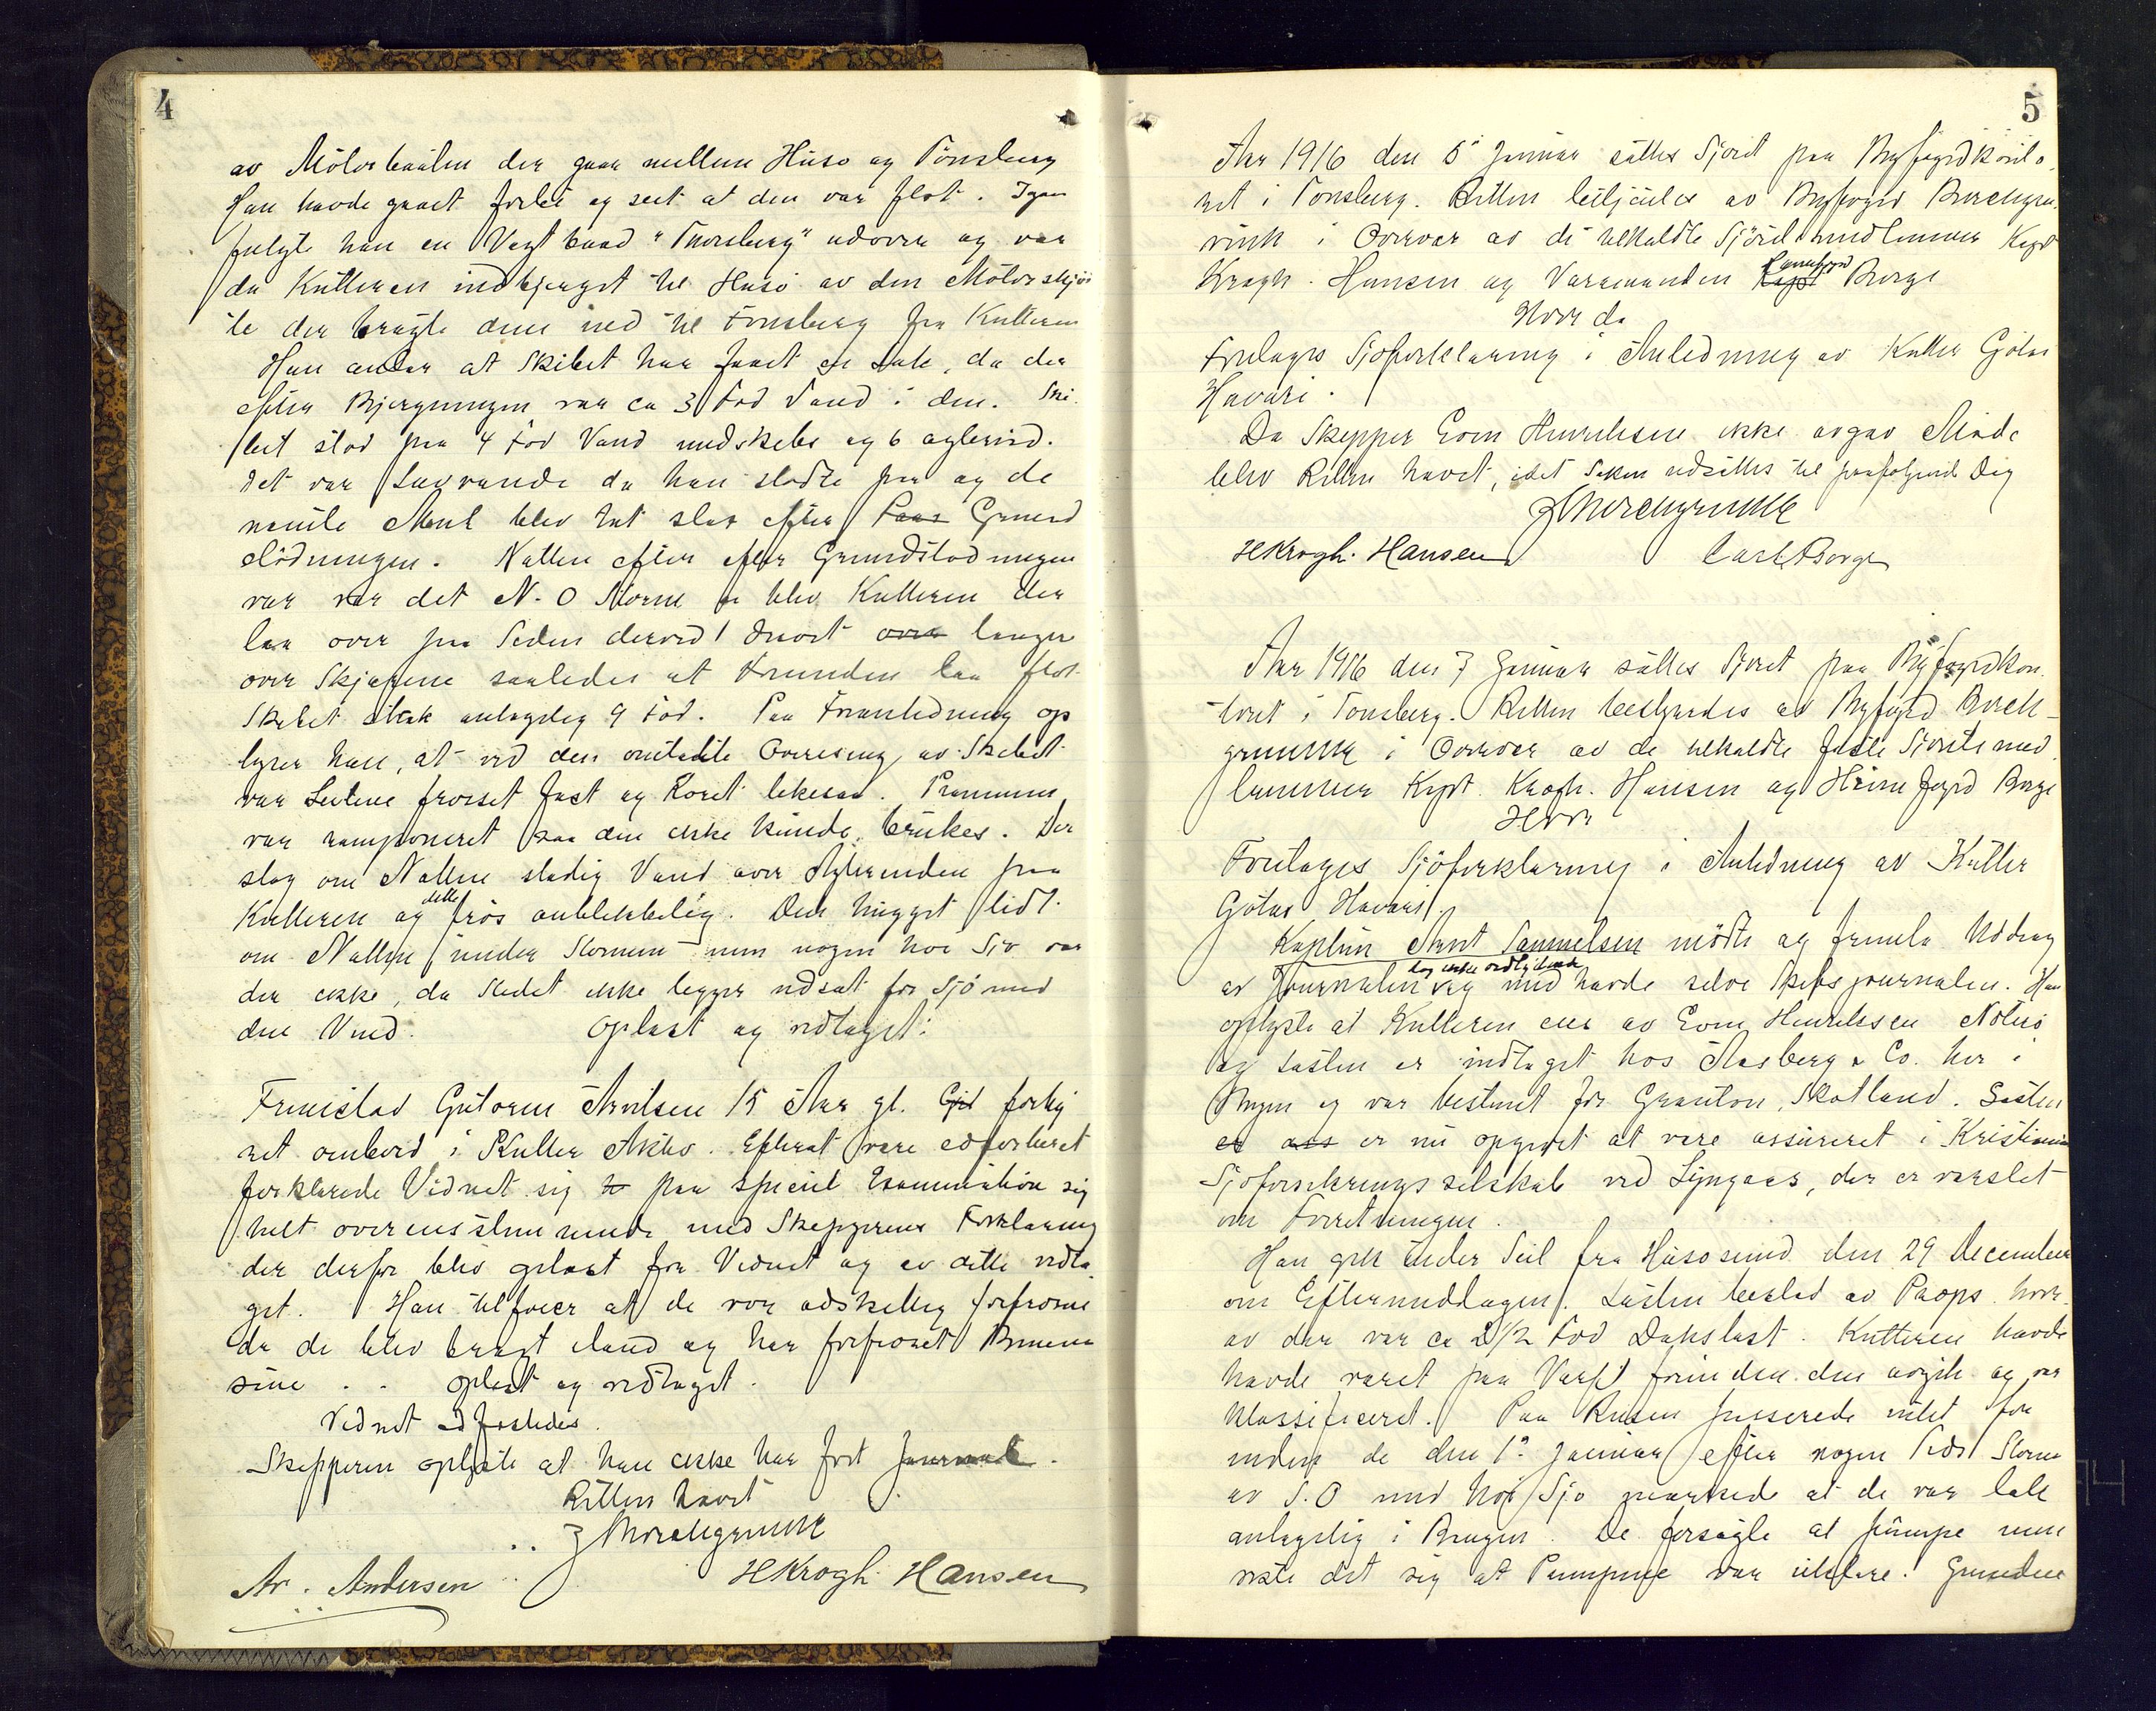 4
av Motorbaaten der gaar mellem Husø og Tönsberg
Han havde gaaet forbi og seet at den var flot. Igaar
fulgte han en Vagtbaad "Thorsberg" udover og var
da Kutteren indbjerget til Husø av den Motorskjöi
te der bragte dem ned til Tönsberg fra Kutteren
Han antar at Skibet har faaet en Læk, da der
efter Bjergningen var ca 3 Fod Vand i den. Ski
bet stod paa 4 Fod Vand midskibs og 6 agterud.
Det var Lavvande da han stødte paa og de
næste Maal blev tat strax efter Paas Grund
stödningen. Natten efter efter Grundstødningen
var var det N.O Storm og blev Kutteren der
laa over paa Siden derved drevet over længer
over Skjærene saaledes at Framenden laa flot
Skibet stak antagelig 9 Fod. Paa Foranledning op
lyser han, at ved den omtalte Overisning av Skibet
var Seilene frosset fast og Roret likesaa. Prammen
var ramponeret saa den ikke kunde brukes. Der
slog om Natten stadig Vand over Agterenden paa
Kutteren og dette frøs øieblikkelig. Den hugget lidt
om Natten under Stormen men nogen høi Sjø var
der ikke, da Stedet ikke ligger udsat for Sjö med
den Vind. Oplæst og vedtaget.
Fremstod Gutorm Arntsen 15 Aar gl. Gift forhy
ret ombord i Kutter Aktiv. Efterat være edfæstet
forklarede Vidnet sig to paa speciel Examination sig
helt overensstemmende med Skipperens Forklaring
der derfor blev oplæst for Vidnet og av dette vedta
get. Han tilføier at de var adskillig forfrosne
da de blev bragt iland og har forfrosset Benene
sine . . oplæst og vedtaget.
Vidnet edfæstedes.
Skipperen oplyste at han ikke har fört Journal.
Retten hævet
J Borchgrevink
Ar. Andersen HKrogh. Hansen
5
Aar 1916 den 5 Januar sattes Sjöret paa Byfogdkonto
ret i Tönsberg. Retten betjentes av Byfoged Borchgre
vink i Overvær av de tilkaldte Sjöretsmedlemmer Kapt
Krogh. Hansen og Varamanden Kapt Havnefogd Borge
Hvor da
Foretoges Sjøforklaring i Anledning av Kutter Götas
Havari.
Da Skipper Evem Henriksen ikke avgav Møde
blev Retten hævet, idet Saken udsættes til paafølgende Dag
J Borchgrevink
HKrogh. Hansen Carl Borge
Aar 1916 den 7 Januar sattes Sjøret paa Byfogedkon
toret i Tønsberg. Retten betjentes av Byfoged Borch-
grevink i Overvær av de tilkaldte faste Sjøretsmed
lemmer Kapt. Krogh. Hansen og Havnefogd Borge
Hvor
Foretoges Sjöforklaring i Anledning av Kutter
Götas Havari.
Kaptein Arnt Samuelsen mödte og fremla Uddrag
av Journalen dog ikke ordlydende og med havde selve Skibsjournalen. Han
oplyste at Kutteren eies av Evem Henriksen Nötterö
og Lasten er indtaget hos Aasberg & Co. her i
Byen og var bestemt for Granton, Skotland. Lasten
er ass er nu opgivet at være assureret i Kristiania
Sjøforsikringsselskab ved Lyngaas, der er varslet
om Forretningen.
Han gik under Seil fra Husøsund den 29 December
om Eftermiddagen. Lasten bestod av Props hvor
av der var ca 2 1/2 Fod Dækslast. Kutteren havde
havde været paa Værft forinden den avgik og var
klassificeret. Paa Reisen passerede intet før
inden de den 1ste Januar efter nogen Tids Storm
av S.O med höi Sjø mærkede at de var læk
antagelig i Bougen. De forsøgte at pumpe men
viste det sig at Pumpene var uklare. Grunden